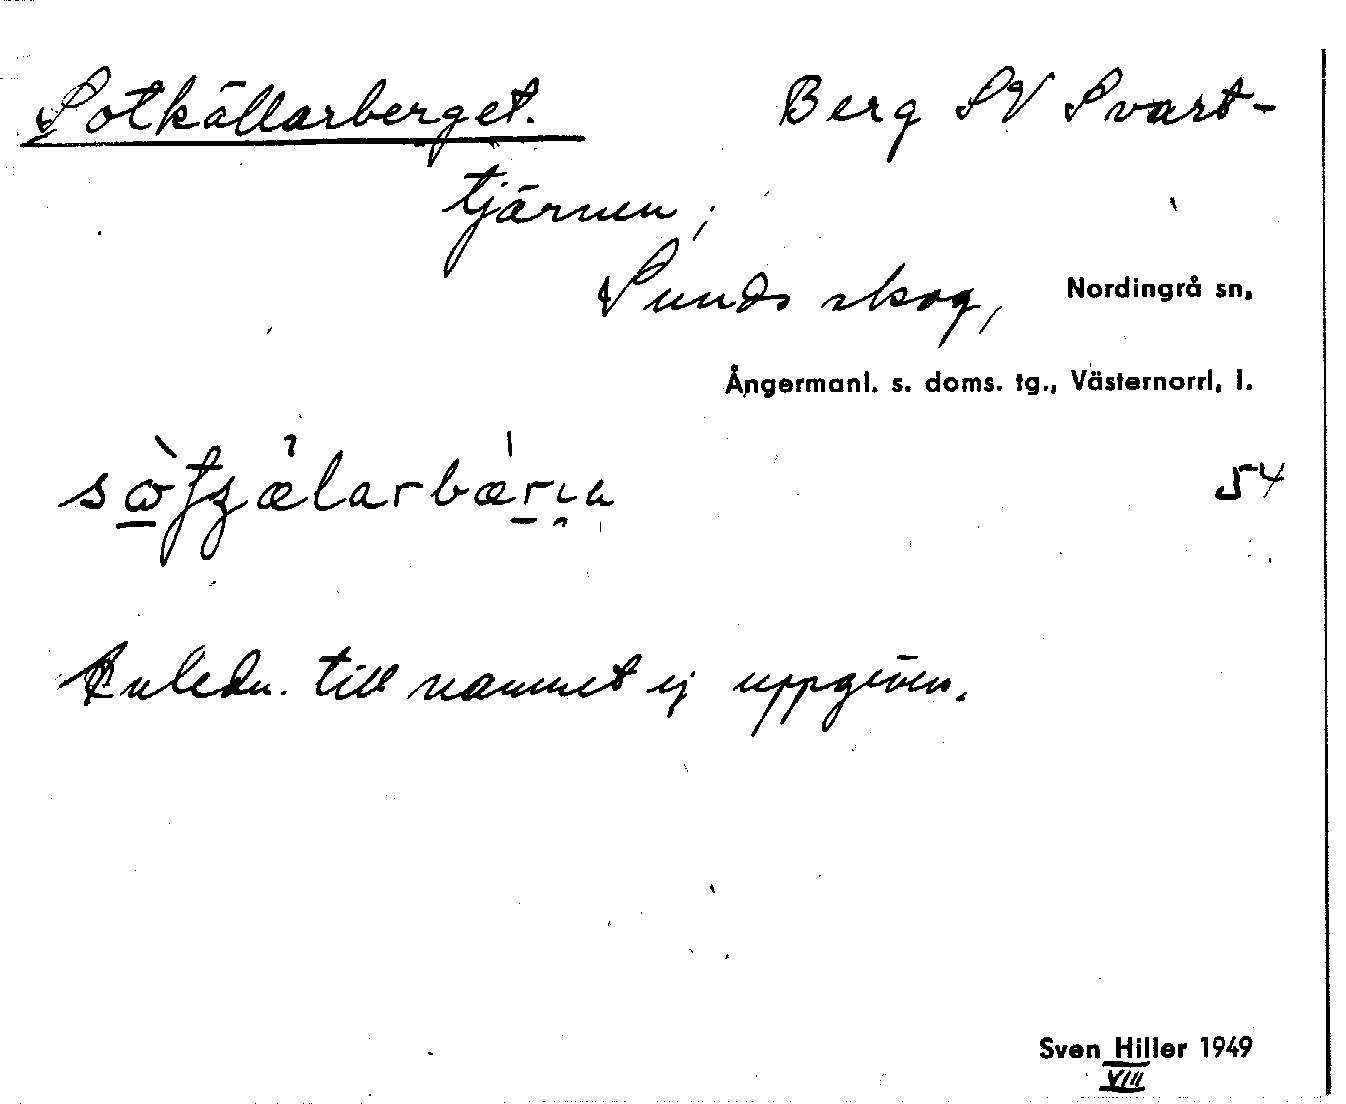 Sotkällarberget. Berg SV Svart-
tjärnen;
Sunds skog, Nordingrå sn,
Ångermanl. s. doms. tg., Västernorrl. l.
54
Anledn. till namnet ej uppgiven.
Sven Hiller 1949
VIII